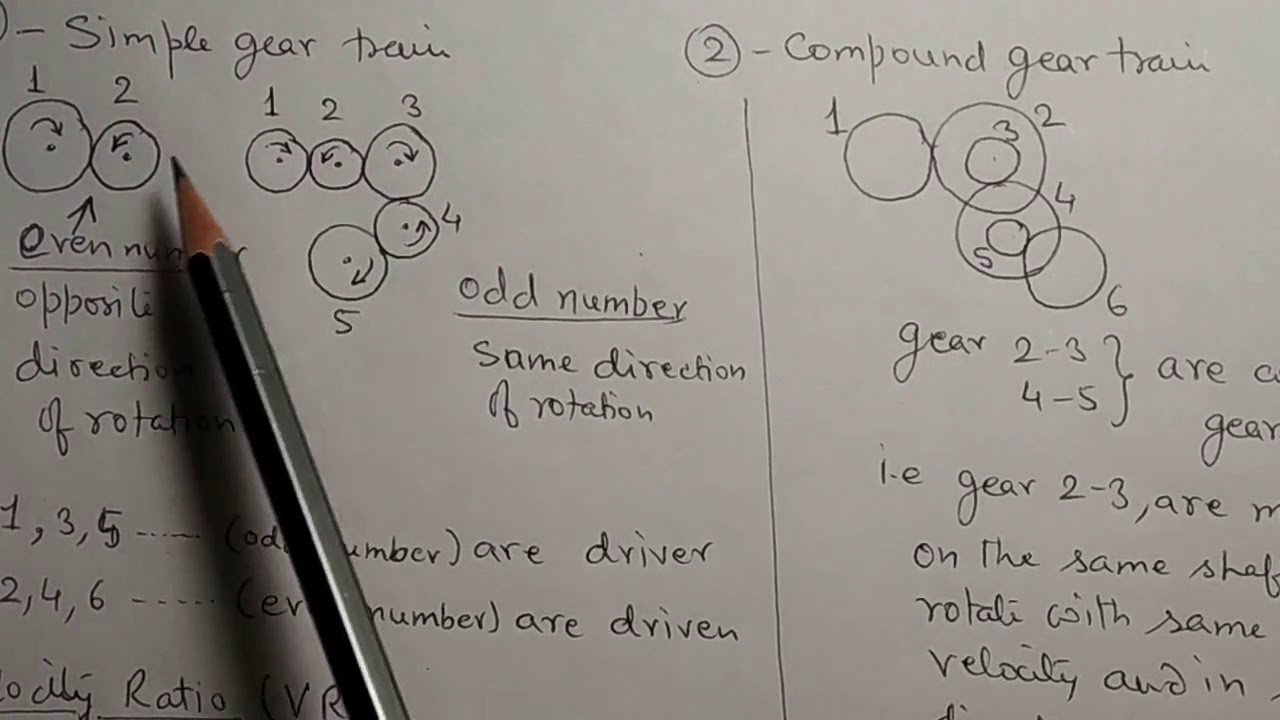 - Simple gear train
1 2
1 2 3
4
5
Even
opposite
direction
of rotation
odd number
Same direction
of rotation
1, 3, 5 ----- (odd number) are driver
2, 4, 6 ----- (even number) are driven
Ratio (VR
② - Compound gear train
1 2
3
4
5
6
gear 2-3 } are
4-5
gear
i.e gear 2-3, are
on the same shaft
rotate with same
velocity and in